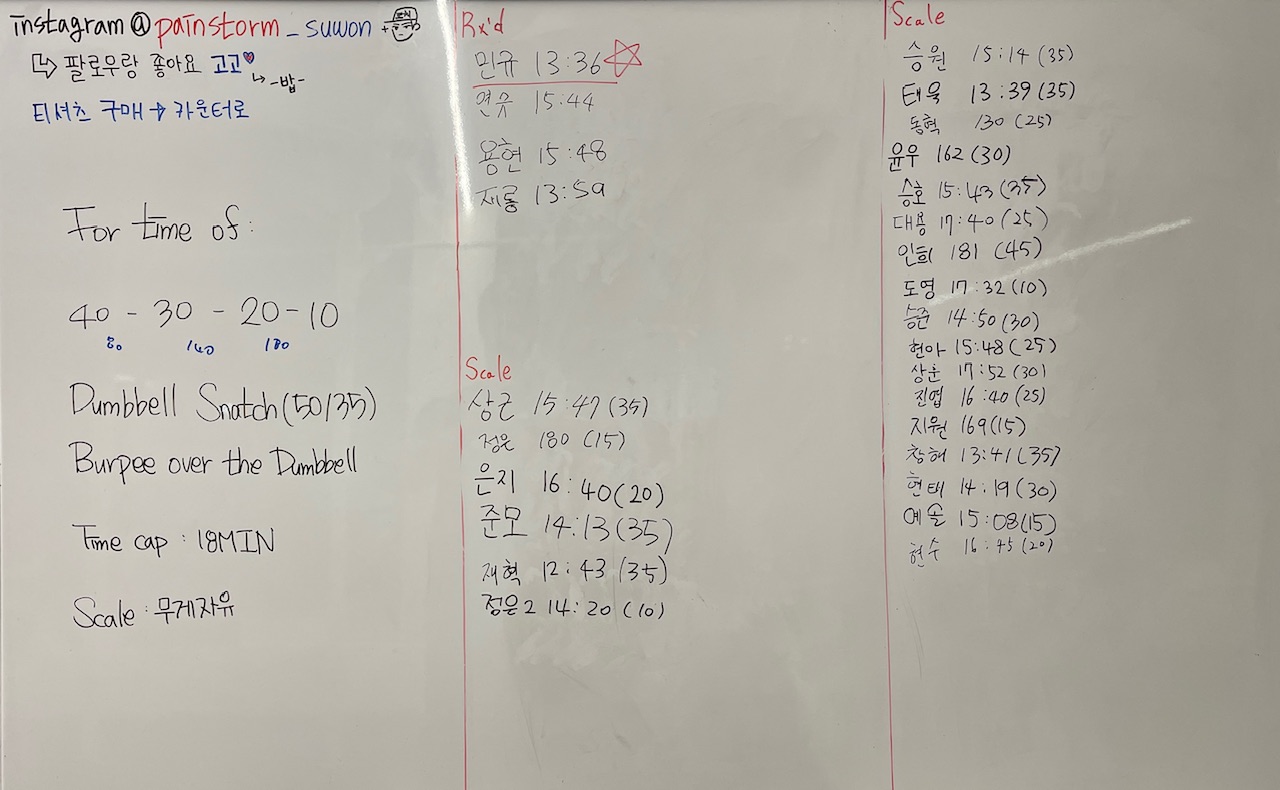 instagram @ painstorm _ suwon
팔로우랑 좋아요 고고♥
-밥-
티셔츠 구매 → 카운터로
For time of:
40 - 30 - 20 - 10
80 140 180
Dumbbell Snatch (50/35)
Burpee over the Dumbbell
Time cap : 18MIN
Scale : 무게자유
Rx'd
민규 13:36
15:44
용현 15:48
재롱 13:59
Scale
상근 15:47 (35)
정은 180 (15)
은지 16:40 (20)
준모 14:13 (35)
재혁 12:43 (35)
정은2 14:20 (10)
Scale
승원 15:14 (35)
태욱 13:39 (35)
동혁 130 (25)
윤우 162 (30)
승호 15:43 (35)
대용 17:40 (25)
인희 181 (45)
도영 17:32 (10)
승준 14:50 (30)
현아 15:48 (25)
상훈 17:52 (30)
진엽 16:40 (25)
지원 169 (15)
13:41 (35)
현태 14:19 (30)
예솔 15:08 (15)
현수 16:45 (20)